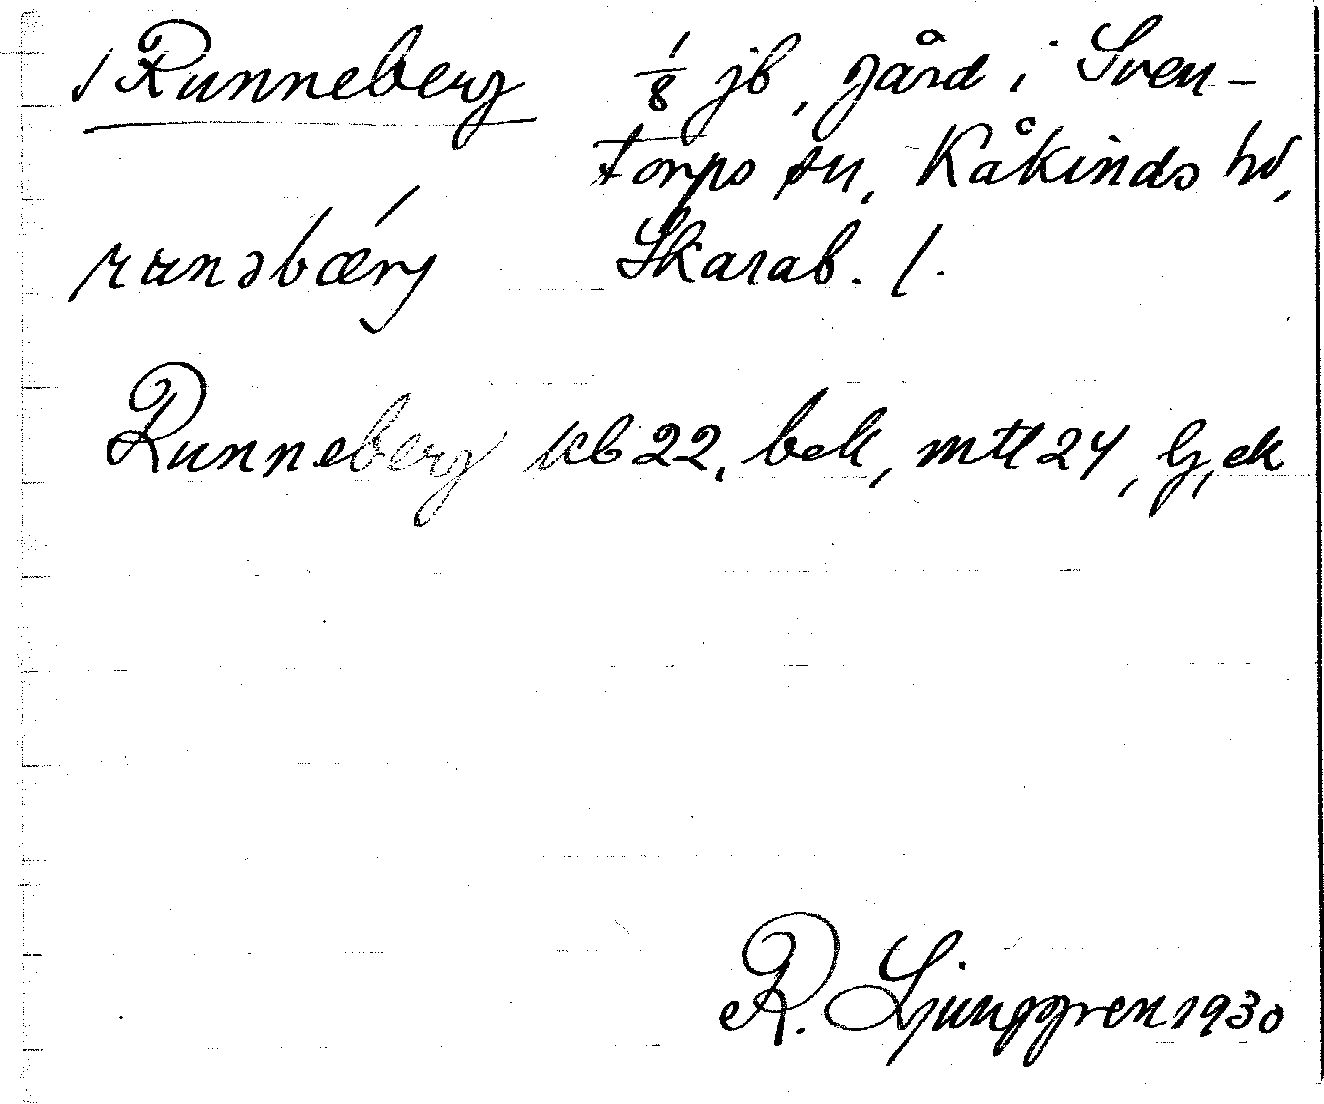 Runneberg 1/8 jb, gård i Sven-
torps sn, Kåkinds hd,
runəbærj Skarab. l.
Runneberg kb 22, bek, mtl 24, G, ek
R. Ljunggren 1930